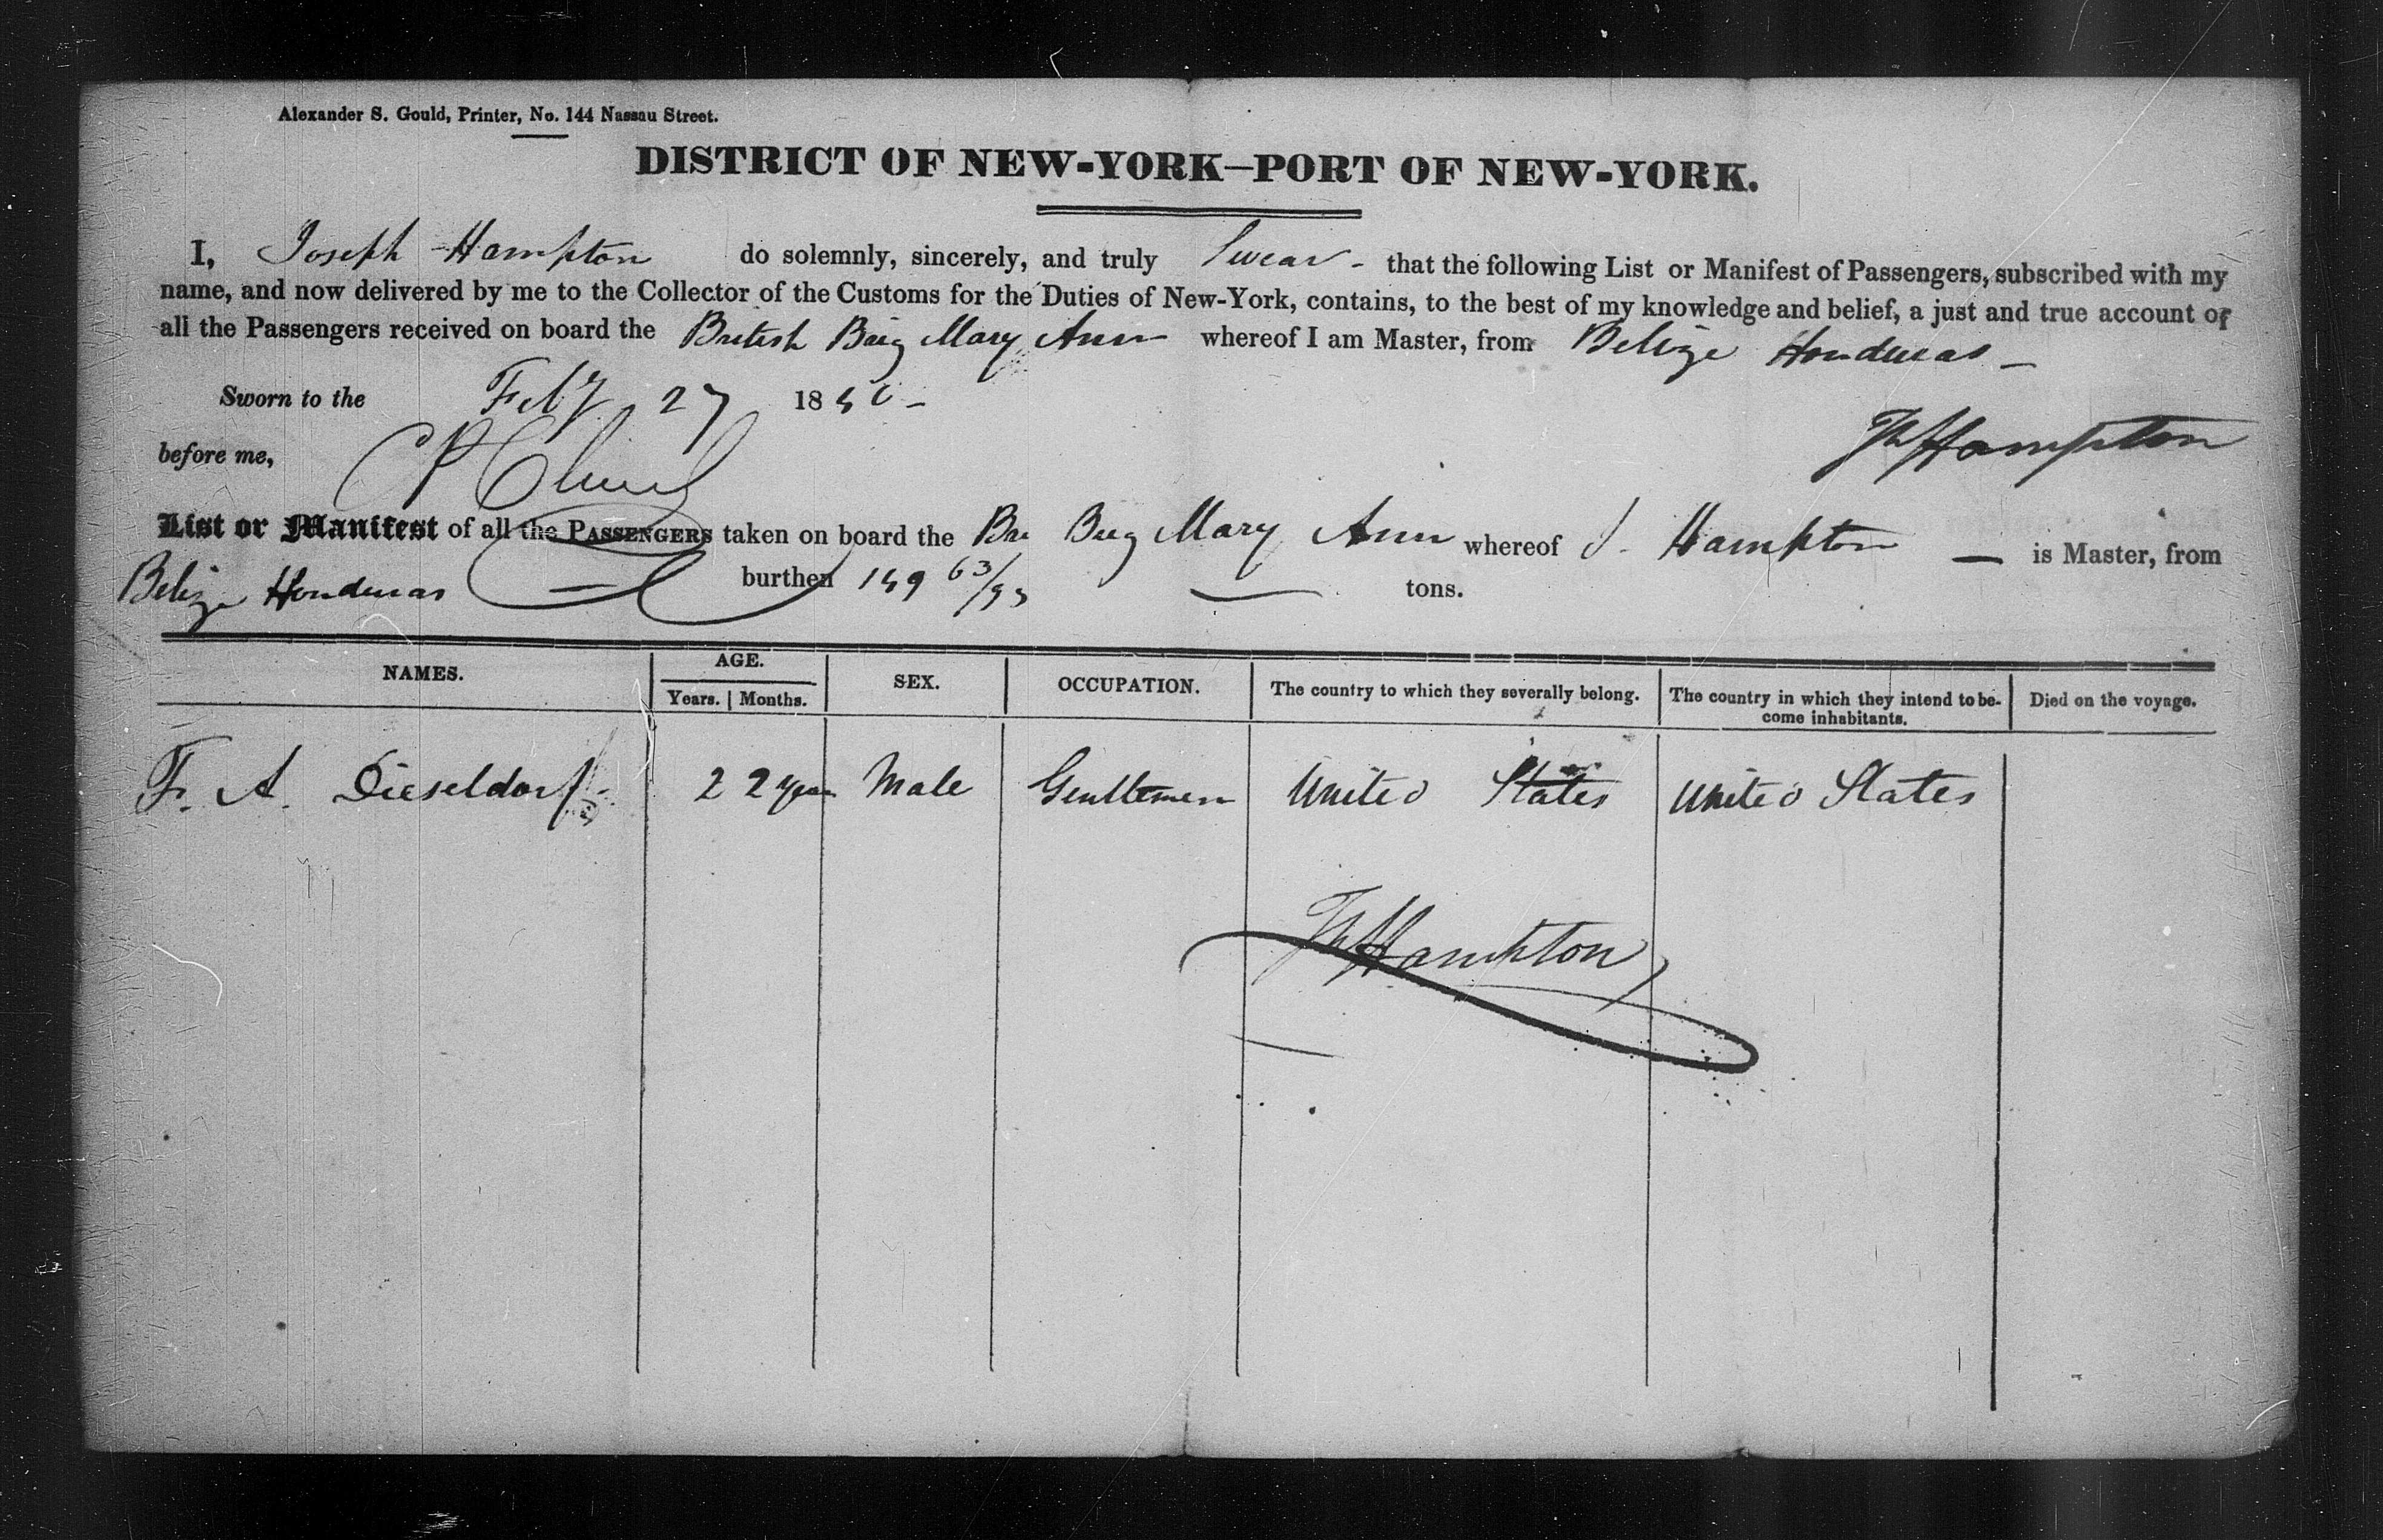 Alexander S. Gould, Printer, No. 144 Nassau Street.
DISTRICT OF NEW-YORK—PORT OF NEW-YORK.
I, Joseph Hampton do solemnly, sincerely, and truly Swear - that the following List or Manifest of Passengers, subscribed with my
name, and now delivered by me to the Collector of the Customs for the Duties of New-York, contains, to the best of my knowledge and belief, a just and true account of
all the Passengers received on board the British Brig Mary Ann whereof I am Master, from Belize Honduras —
Sworn to the Feby 27 1850 -
Jh Hampton
before me,
List or Manifest of all the PASSENGERS taken on board the Brig Mary Ann whereof J. Hampton — is Master, from
Belize Honduras burthen 149 63/95 tons.
NAMES. AGE. SEX. OCCUPATION. The country to which they severally belong. The country in which they intend to be-come inhabitants. Died on the voyage.
Years. | Months.
F. A. Dieseldorf 22 years Male Gentlemen United States United States
Jh Hampton